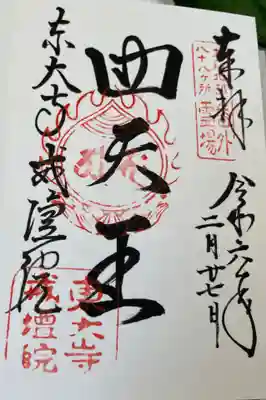 奉拝
八十八ヶ所霊場
令和六年
二月廿七日
四天王
東大寺戒壇院
東大寺
戒壇院